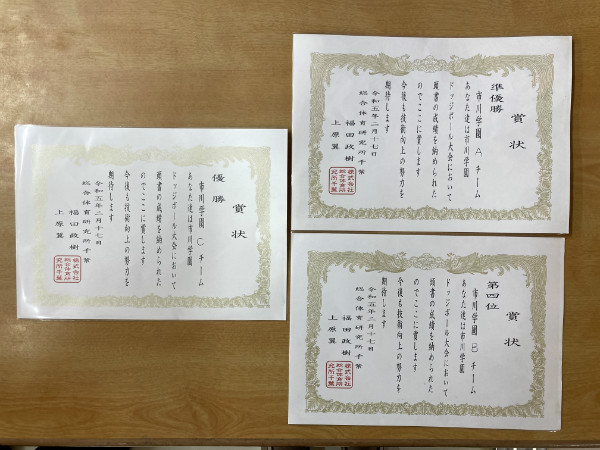 賞状
優勝
市川学園 C チーム
あなた達は市川学園
ドッジボール大会において
頭書の成績を納められた
のでここに賞します
今後も技術向上の努力を
期待します
令和五年二月十七日
総合体育研究所千葉
福田政樹
上原翼
株式会社
総合体育研
究所千葉
賞状
準優勝
市川学園 A チーム
あなた達は市川学園
ドッジボール大会において
頭書の成績を納められた
のでここに賞します
今後も技術向上の努力を
期待します
令和五年二月十七日
総合体育研究所千葉
福田政樹
上原翼
株式会社
総合体育研
究所千葉
賞状
第四位
市川学園 B チーム
あなた達は市川学園
ドッジボール大会において
頭書の成績を納められた
のでここに賞します
今後も技術向上の努力を
期待します
令和五年二月十七日
総合体育研究所千葉
福田政樹
上原翼
株式会社
総合体育研
究所千葉